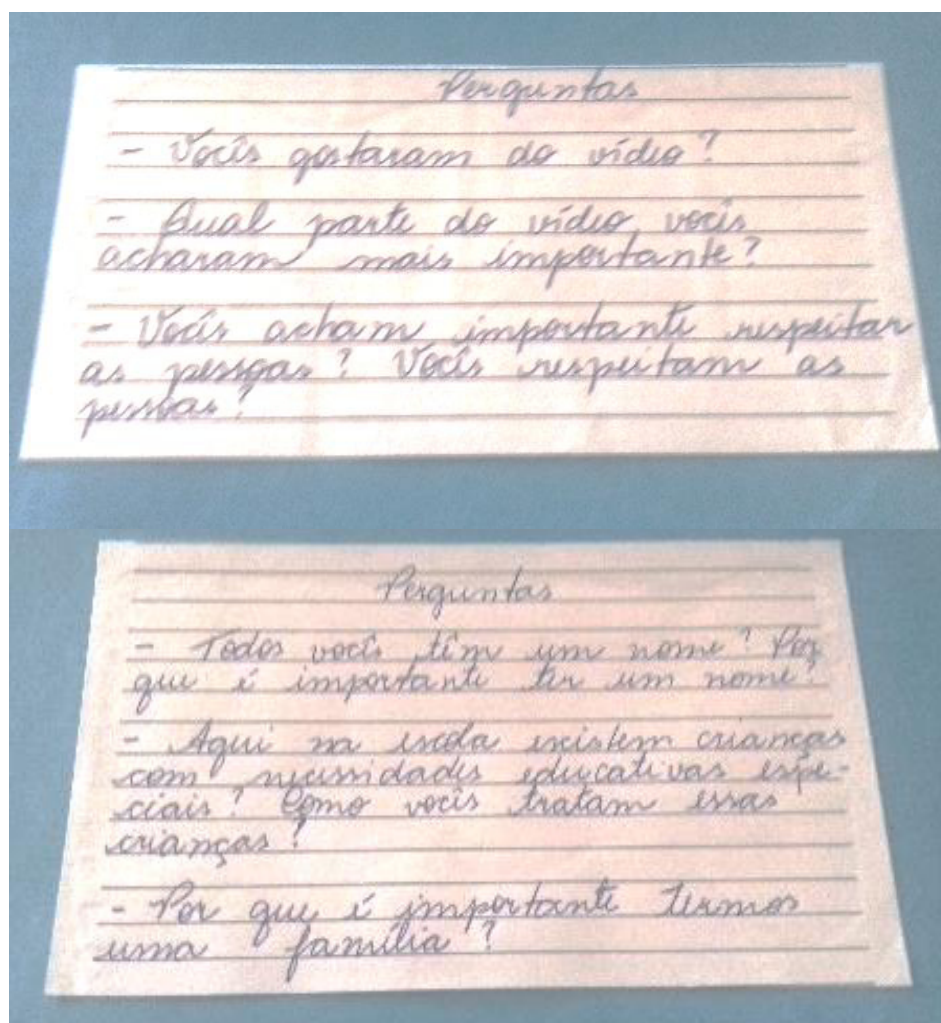 Perguntas
- Vocês gostaram do vídeo?
- Qual parte do vídeo, vocês
acharam mais importante?
- Vocês acham importante respeitar
as pessoas? Vocês respeitam as
pessoas?
Perguntas
- Todos vocês têm um nome? Por
que é importante ter um nome?
- Aqui na escola existem crianças
com necessidades educativas espe-
ciais? Como vocês tratam essas
crianças?
- Por que é importante termos
uma família?